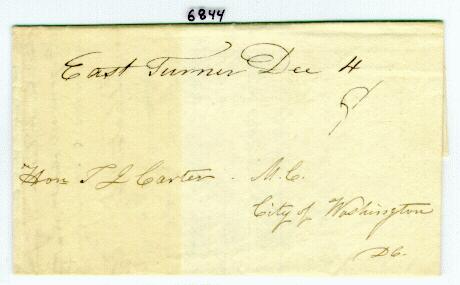 6844
East Turner Dec 4
Hon T J Carter. M.C.
City of Washington
DC.